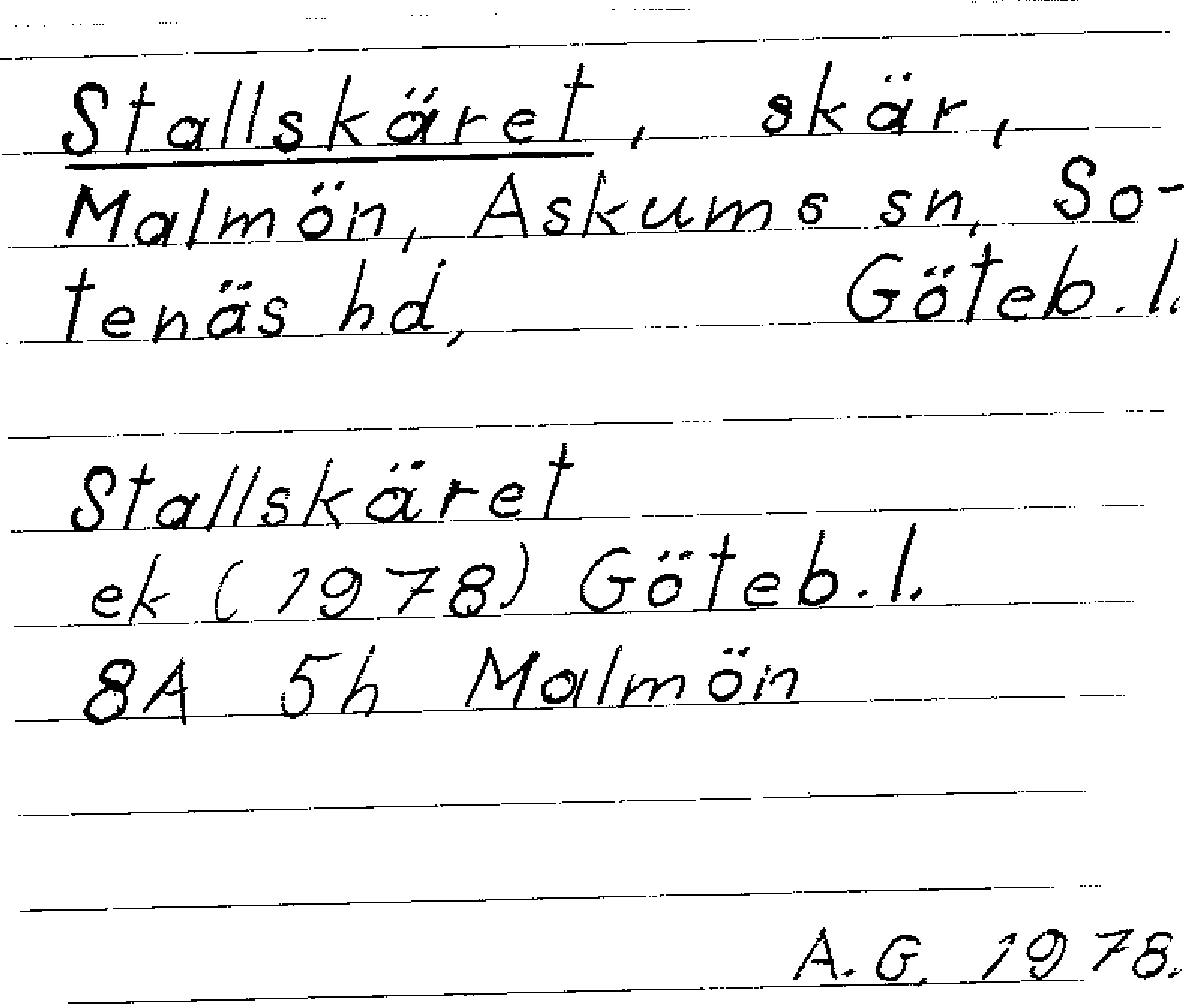 Stallskäret, skär,
Malmön, Askums sn, So-
tenäs hd, Göteb. l.
Stallskäret
ek (1978) Göteb. l.
8A 5h Malmön
A. G. 1978.